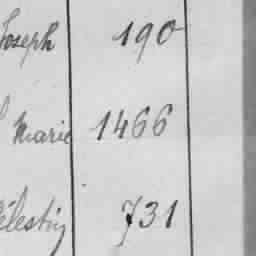 Joseph 190
Marie 1466
Célestin 731